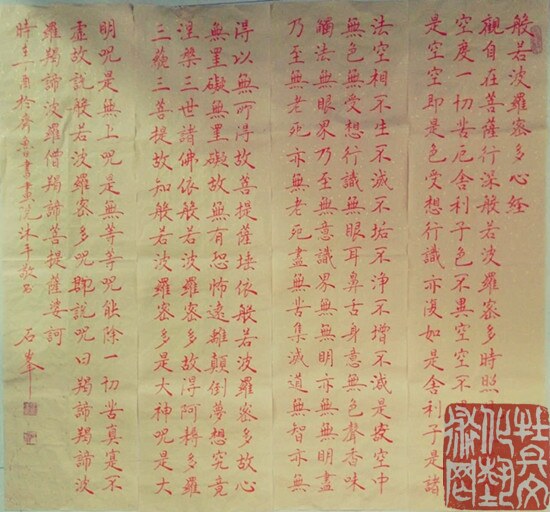 般若波羅密多心經
觀自在菩薩行深般若波羅密多時照
空度一切苦厄舍利子色不異空空不
是空空即是色受想行識亦復如是舍利子是諸
法空相不生不滅不垢不淨不增不減是故空中
無色無受想行識無眼耳鼻舌身意無色聲香味
觸法無眼界乃至無意識界無無明亦無無明盡
乃至無老死亦無老死盡無苦集滅道無智亦無
得以無所得故菩提薩埵依般若波羅密多故心
無罣礙無罣礙故無有恐怖遠離顛倒夢想究竟
涅槃三世諸佛依般若波羅密多故得阿耨多羅
三藐三菩提故知般若波羅密多是大神呪是大
明呪是無上呪是無等等呪能除一切苦真寔不
虛故說般若波羅密多呪即說呪曰羯諦羯諦波
羅羯諦波羅僧羯諦菩提薩婆訶
時於齊魯書畫院沐手敬書
石峰